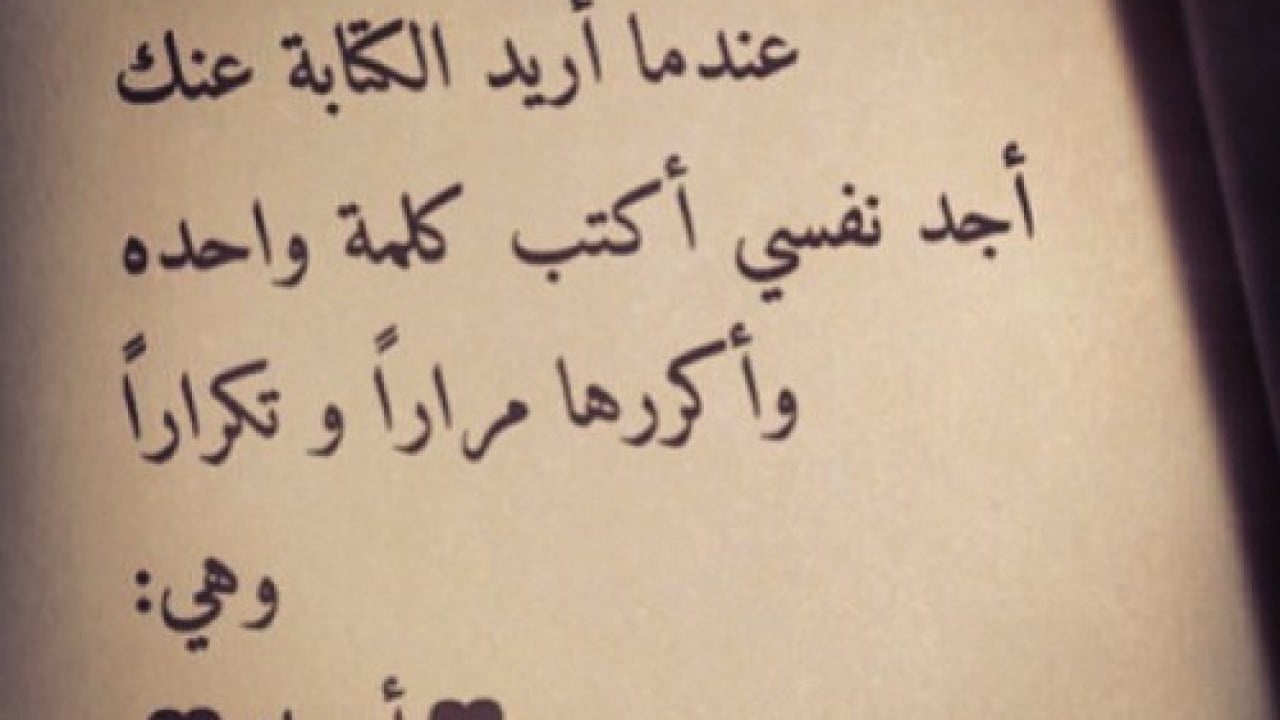 عندما أريد الكتابة عنك
أجد نفسي أكتب كلمة واحده
وأكررها مراراً و تكراراً
وهي: